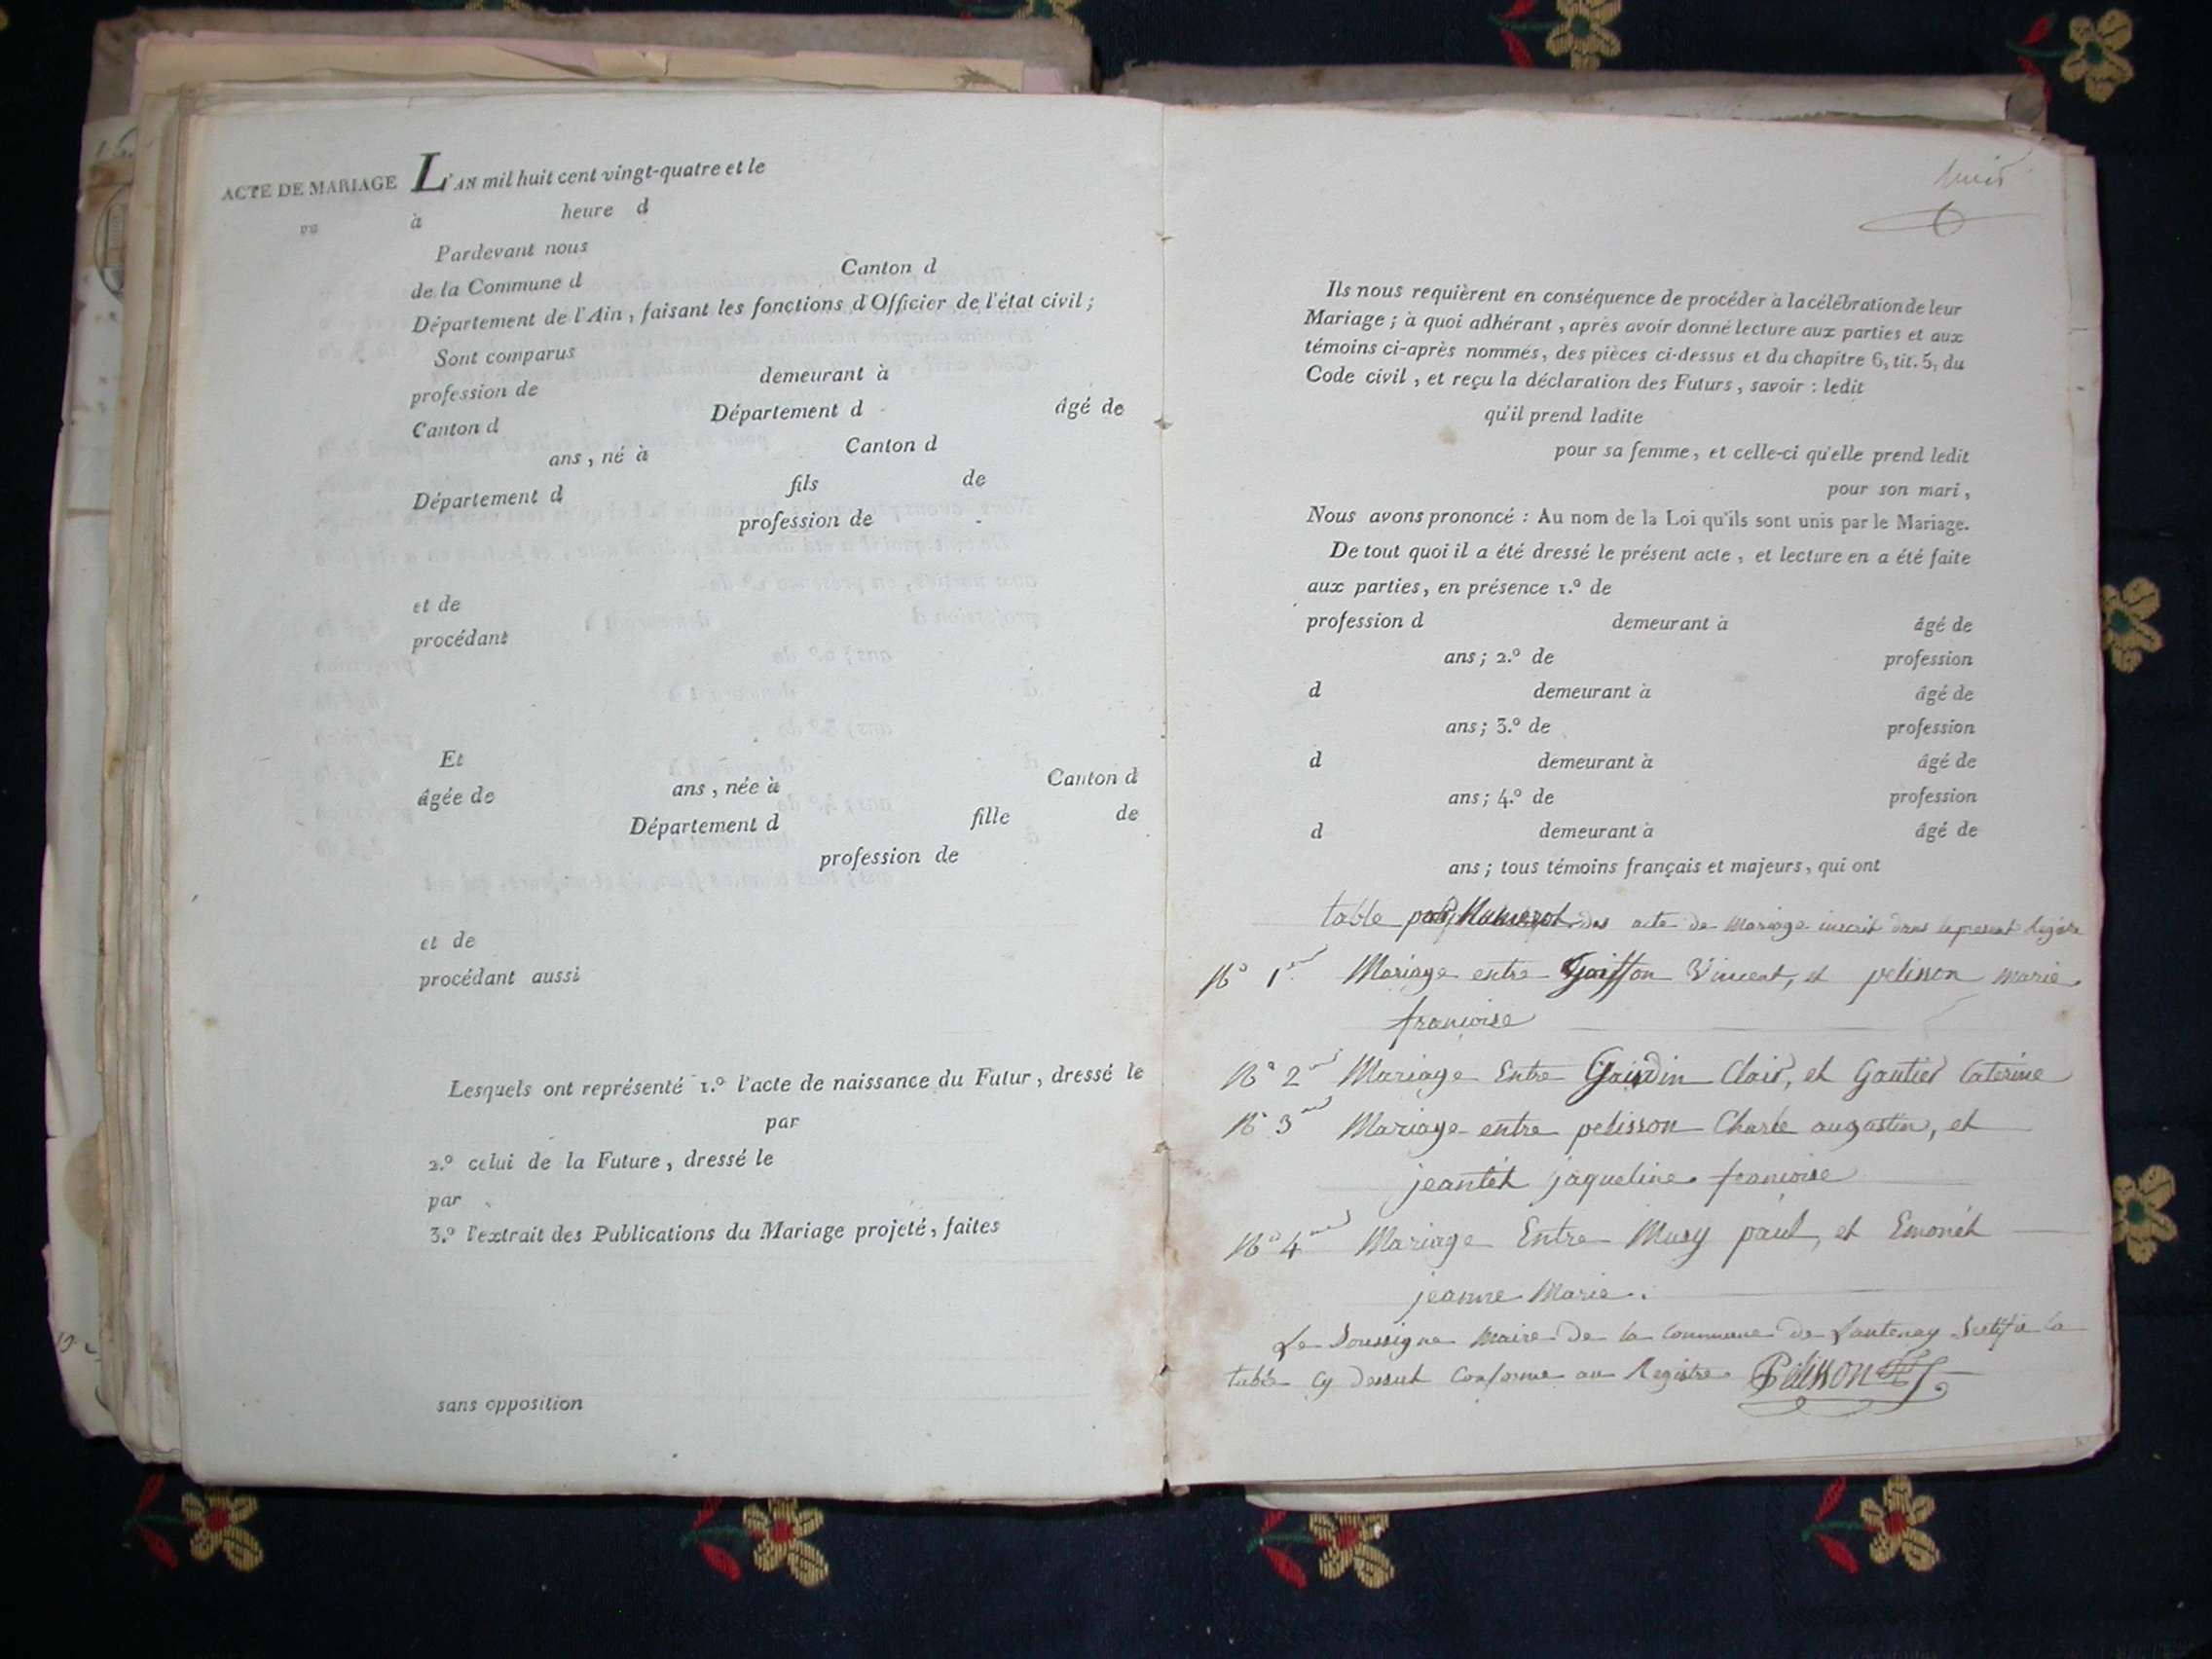 ACTE DE MARIAGE L'AN mil huit cent vingt-quatre et le
à heure d
Pardevant nous
de la Commune d Canton d
Département de l'Ain, faisant les fonctions d'Officier de l'état civil;
Sont comparus
profession de demeurant à
Canton d Département d âgé de
ans, né à Canton d
Département d fils de
profession de
et de
procédant
Et
âgée de ans, née à Canton d
Département d fille de
profession de
et de
procédant aussi
Lesquels ont représenté 1.º l'acte de naissance du Futur, dressé le
par
2.º celui de la Future, dressé le
par
3.º l'extrait des Publications du Mariage projeté, faites
sans opposition
6
Ils nous requièrent en conséquence de procéder à la célébration de leur
Mariage; à quoi adhérant, après avoir donné lecture aux parties et aux
témoins ci-après nommés, des pièces ci-dessus et du chapitre 6, tit. 5, du
Code civil, et reçu la déclaration des Futurs, savoir: ledit
qu'il prend ladite
pour sa femme, et celle-ci qu'elle prend ledit
pour son mari,
Nous avons prononcé: Au nom de la Loi qu'ils sont unis par le Mariage.
De tout quoi il a été dressé le présent acte, et lecture en a été faite
aux parties, en présence 1.º de
profession d demeurant à âgé de
ans; 2.º de profession
d demeurant à âgé de
ans; 3.º de profession
d demeurant à âgé de
ans; 4.º de profession
d demeurant à âgé de
ans; tous témoins français et majeurs, qui ont
table des acte de Mariage inscrit dans le present Registre
Nº 1 Mariage entre Goiffon Vincent, et pelisson marie
françoise
Nº 2 Mariage Entre Clair, et Gautier Caterine
Nº 3 Mariage entre pelisson Charle augastin, et
jeantét jaqueline françoise
Nº 4 Mariage Entre Musy paul, et Emonét
jeanne Marie.
Le Soussigne Maire de la Commune de Lantenay Sertifie la
table cy dessut Conforme au Registre Pélisson